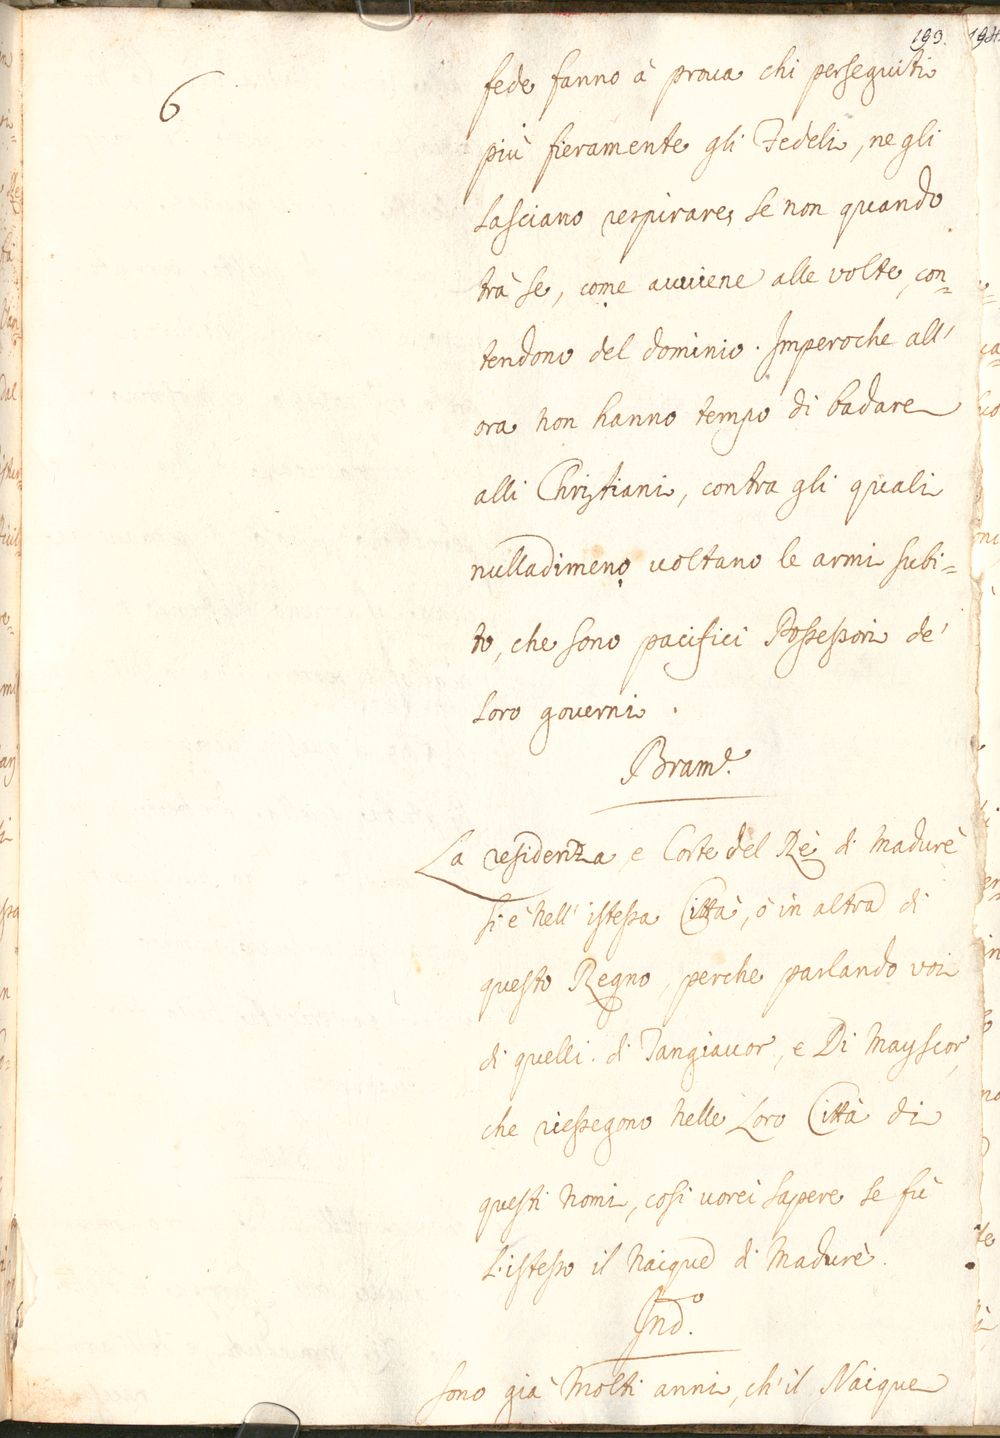 193.
6
fede fanno à proua chi perseguiti
più fieramente gli Fedeli, ne gli
lasciano respirare, se non quando
trà se, come auuiene alle volte, con=
tendono del dominio. Imperoche all'
ora non hanno tempo di badare
alli Christiani, contra gli quali
nulladimeno uoltano le armi subi=
to, che sono pacifici Possessori de'
loro governi.
Bram.e
La residenza e Corte del Rè di Madurè
si è nell' istessa Città, ò in altra di
questo Regno, perche parlando voi
di quelli di Tangiauor, e Di Mayscor,
che riessegono nelle Loro Città di
questi nomi, cosi uorei sapere se fù
l'istesso il Naique di Madurè.
Ind.o
Sono già Molti anni, ch'il Naique